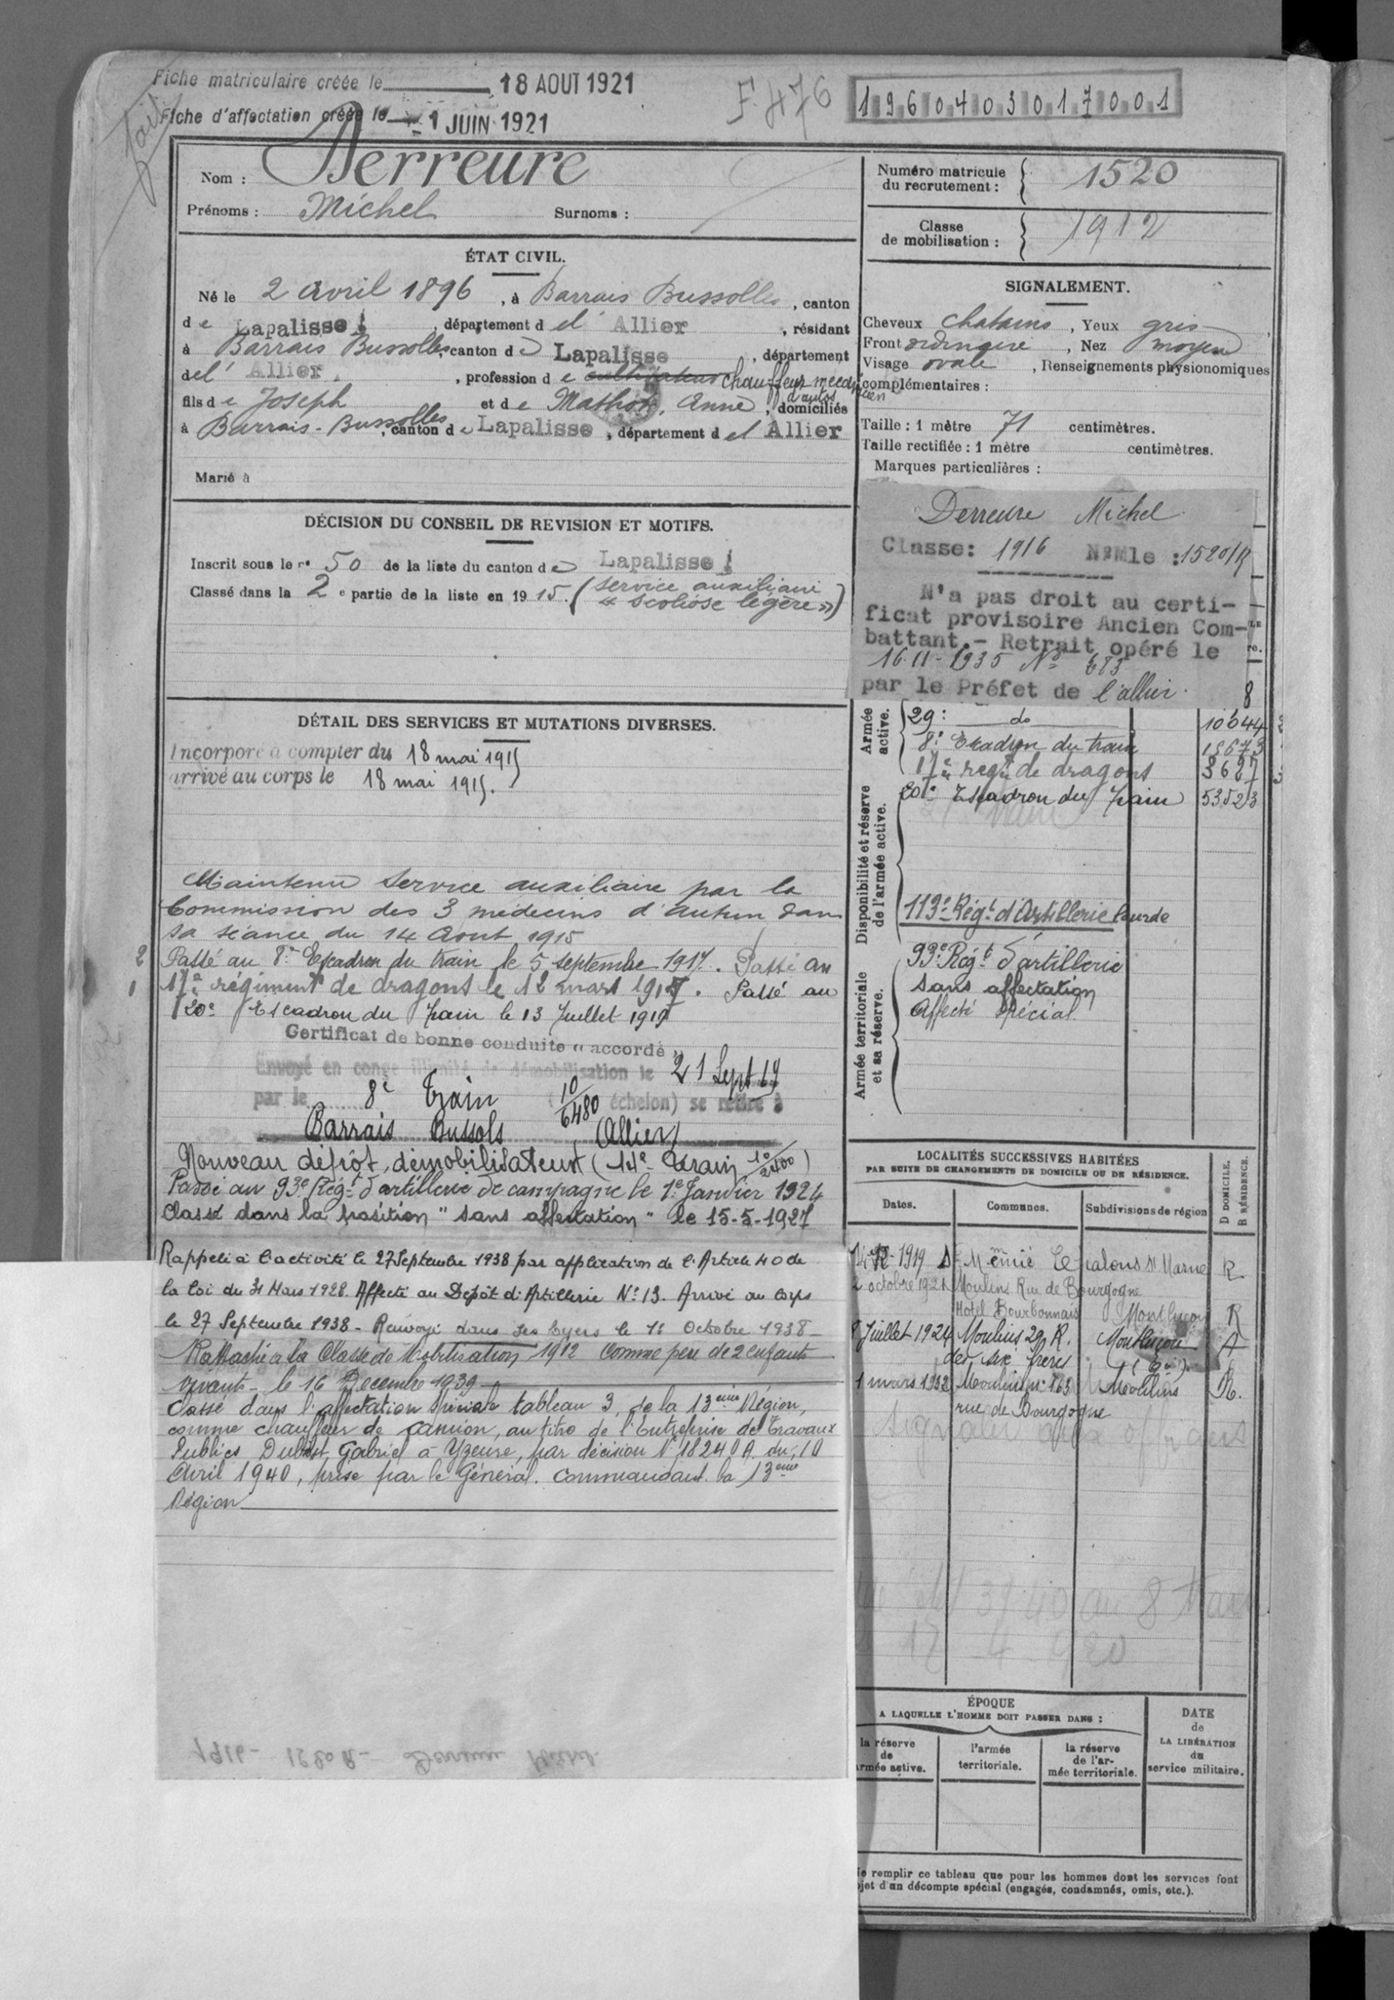 Fiche matriculaire créée le 18 AOUT 1921
Fiche d'affectation créée le 1 JUIN 1921
F 476
1960403017001
Nom : Derreure
Prénoms : Michel Surnoms :
Numéro matricule du recrutement : 1520
Classe de mobilisation : 1912
ÉTAT CIVIL.
Né le 2 avril 1896, à Barrais Bussolles, canton
de Lapalisse, département de l'Allier, résidant
à Barrais Bussolles canton de Lapalisse, département
del' Allier, profession de cultivateur chauffeur mecanicien d'autos
fils de Joseph et de Mathon, Anne, domiciliés
à Barrais-Bussolles, canton de Lapalisse, département del Allier
Marié à
SIGNALEMENT.
Cheveux chatains, Yeux gris
Front ordinaire, Nez moyen
Visage ovale, Renseignements physionomiques
complémentaires :
Taille : 1 mètre 71 centimètres.
Taille rectifiée : 1 mètre centimètres.
Marques particulières :
DÉCISION DU CONSEIL DE REVISION ET MOTIFS.
Inscrit sous le n° 50 de la liste du canton de Lapalisse
Classé dans la 2e partie de la liste en 1915. (service auxiliaire
"scoliose légère")
Derreure Michel
Classe: 1916 N°Mle : 1520/R
N'a pas droit au certi-
ficat provisoire Ancien Com-
battant.- Retrait opéré le
16-11-1935 N° 683
par le Préfet de l'allier.
DÉTAIL DES SERVICES ET MUTATIONS DIVERSES.
Incorporé à compter du 18 mai 1915
arrivé au corps le 18 mai 1915.
Maintenu Service auxiliaire par la
Commission des 3 médecins d'Autun dans
sa séance du 14 Aout 1915
Passé au 8e Escadron du train le 5 septembre 1917. Passé au
17e régiment de dragons le 12 mars 1917. Passé au
20e Escadron du train le 13 Juillet 1919
Certificat de bonne conduite "accordé"
Envoyé en congé illimité de démobilisation le 21 Sept 19
par le 8e Train (10/6480 échelon) se retire à
Barrais Bussols (Allier)
Nouveau dépôt démobilisateur (14e Train 10/2400)
Passé au 93e Régt d'artillerie de campagne le 1er Janvier 1924
Classé dans la position "sans affectation" le 15-5-1927
Rappelé à l'activité le 27 Septembre 1938 par application de l'Article 40 de
la loi du 31 Mars 1928. Affecté au Dépôt d'Artillerie N° 13. Arrivé au corps
le 27 Septembre 1938 - Renvoyé dans ses foyers le 11 Octobre 1938 -
Rattaché à la Classe de Mobilisation 1912 comme père de 2 enfants
vivants - le 16 Décembre 1939
Classé dans l'affectation spéciale tableau 3, de la 13ème Région,
comme chauffeur de camion, au titre de l'Entreprise de Travaux
Publics Dubost, Gabriel à Yzeure, par décision N° 18240A du 10
Avril 1940, prise par le Général commandant la 13ème
Région
1916 - 1520R - Derreure Michel
Armée active.
29e do 10644
8e Escadron du train 15673
17e regt de dragons 3627
20e Escadron du Train 53523
Disponibilité et réserve de l'armée active.
113e Régt d'Artillerie lourde
Armée territoriale et sa réserve.
93e Régt d'artillerie
sans affectation
Affecté Spécial
LOCALITÉS SUCCESSIVES HABITÉES
PAR SUITE DE CHANGEMENTS DE DOMICILE OU DE RÉSIDENCE.
Dates. Communes. Subdivisions de région D DOMICILE. R RÉSIDENCE.
1919 Ste Menie Chalons s/ Marne R
2 octobre 1921 Moulins Rue de Bourgogne
Hôtel Bourbonnais Montluçon R
8 Juillet 1924 Moulins 29 R. Montluçon
des six frères
1 mars 1932 Moulins n° 163 Moulins R.
rue de Bourgogne
ÉPOQUE
A LAQUELLE L'HOMME DOIT PASSER DANS :
la réserve de armée active.
l'armée territoriale.
la réserve de l'armée territoriale.
DATE de LA LIBÉRATION du service militaire.
Ne remplir ce tableau que pour les hommes dont les services font
objet d'un décompte spécial (engagés, condamnés, omis, etc.).